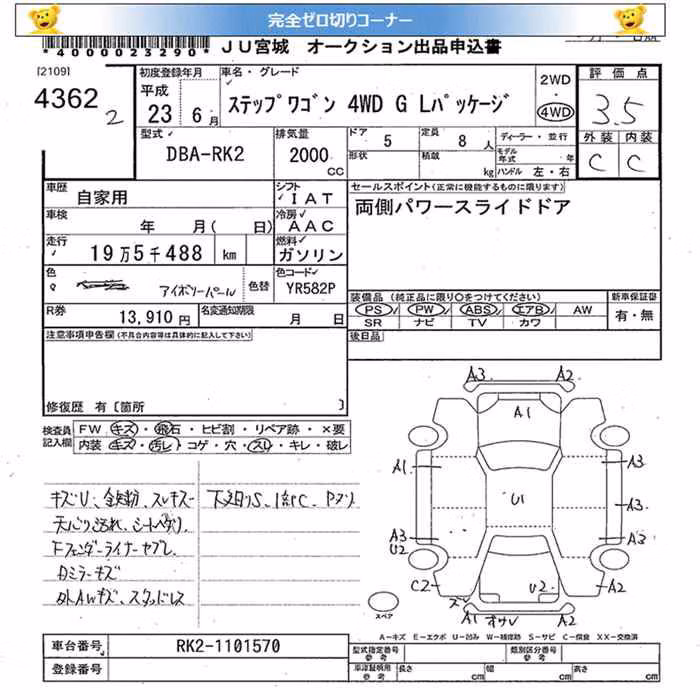 完全ゼロ切りコーナー
*40000023290* JU宮城 オークション出品申込書
[2109] 初度登録年月 車名・グレード 2WD 評価点
4362 2 平成 23 6月 ステップワゴン 4WD G Lパッケージ 4WD 3.5
型式 排気量 ドア 5 定員 8人 ディーラー・並行 外装 内装
DBA-RK2 2000 CC 形状 積載 kg モデル年式 年 ハンドル 左・右 C C
車歴 自家用 シフト IAT セールスポイント(正常に機能するものに限ります)
車検 年 月( 日) 冷房 AAC 両側パワースライドドア
走行 19万5千488 km 燃料 ガソリン
色 アイボリーパール 色替 色コード YR582P
装備品(純正品に限り○をつけてください) 新車保証書
R券 13,910円 名変通知期限 月 日 PS PW ABS エアB AW 有・無
SR ナビ TV カワ
注意事項申告欄(不具合内容等は具体的に記入して下さい) 後日品
修復歴 有[箇所 ]
検査員記入欄 FW キズ・飛石・ヒビ割・リペア跡・×要
内装 キズ・汚レ・コゲ・穴・スレ・キレ・破レ
キズU、金失粉、スレキズ 下廻りS、
天バリ汚れ、シートヘタリ
Fフェンダーライナーヤブレ
Dミラーキズ
外AWキズ、スタッドレス
A3 A2
A1
A1 A3
U1 A3
A3 U2 A3
C2 U2 A2
A1 A2
スペア
A-キズ E-エクボ U-凹み W-補修跡 S-サビ C-腐食 XX-交換済
車台番号 RK2-1101570 型式指定番号 参考 類別区分番号 参考
登録番号 車庫証明用 参考 長さ cm 幅 cm 高さ cm